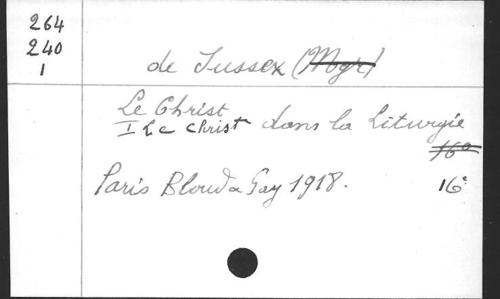 264
240
1
de Tussex (Mgr)
Le Christ
I Le Christ dans la Liturgie
16º
Paris Bloud & Gay 1918. 16º